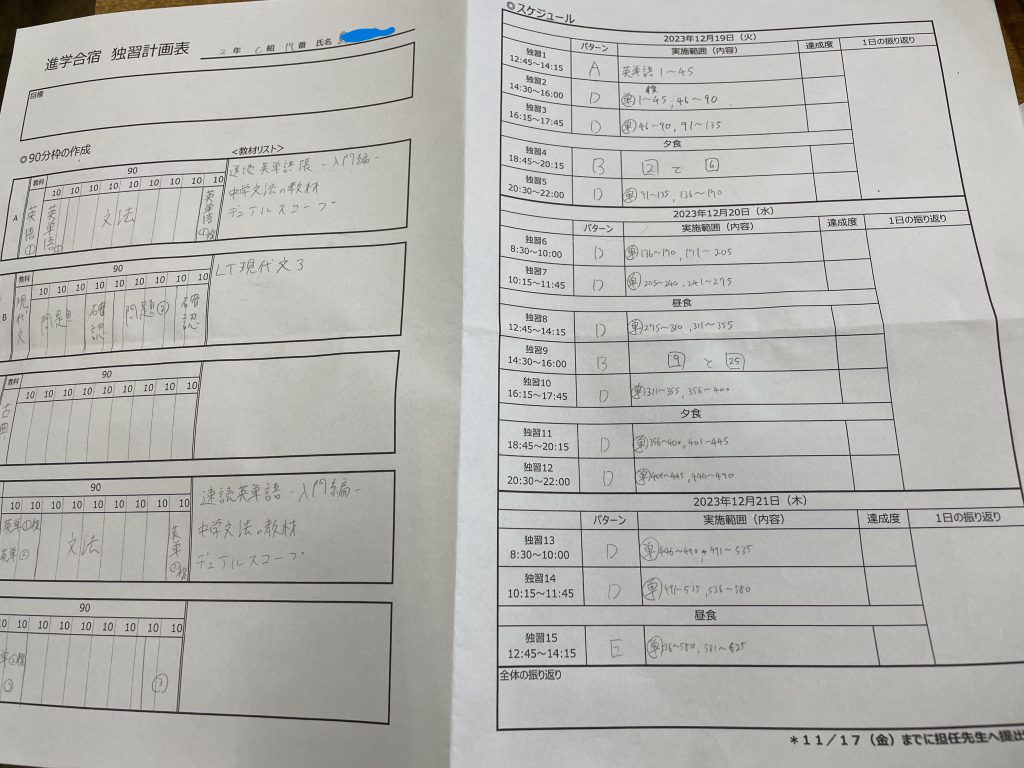 進学合宿 独習計画表
2年 C組 19番 氏名
目標
◎90分枠の作成
<教材リスト>
A
教科
90
10 10 10 10 10 10 10 10 10
英語
英単語①
文法
英単語①復
速読英単語張 -入門編-
中学文法の教材
デュアルスコープ
B
教科
90
10 10 10 10 10 10 10 10 10
現代文
問題
確認
問題②
確認
LT現代文3
教科
90
10 10 10 10 10 10 10 10 10
古典
90
10 10 10 10 10 10 10 10 10
英単①復
英単②
文法
英単②復
速読英単語 -入門編-
中学文法の教材
デュアルスコープ
90
10 10 10 10 10 10 10 10 10
単②復
③
③
◎スケジュール
2023年12月19日（火）
パターン 実施範囲（内容） 達成度 1日の振り返り
独習1
12:45～14:15
A 英単語 1～45
独習2
14:30～16:00
D 単 1～45, 46～90
独習3
16:15～17:45
D 単 46～90, 91～135
夕食
独習4
18:45～20:15
B 2 と 6
独習5
20:30～22:00
D 単 91～135, 136～190
2023年12月20日（水）
パターン 実施範囲（内容） 達成度 1日の振り返り
独習6
8:30～10:00
D 単 136～190, 171～205
独習7
10:15～11:45
D 単 205～240, 241～275
昼食
独習8
12:45～14:15
D 単 275～310, 311～355
独習9
14:30～16:00
B 9 と 25
独習10
16:15～17:45
D 単 311～355, 356～400
夕食
独習11
18:45～20:15
D 単 356～400, 401～445
独習12
20:30～22:00
D 単 401～445, 446～490
2023年12月21日（木）
パターン 実施範囲（内容） 達成度 1日の振り返り
独習13
8:30～10:00
D 単 446～490, 491～535
独習14
10:15～11:45
D 単 491～535, 536～580
昼食
独習15
12:45～14:15
E 単 536～580, 581～625
全体の振り返り
＊11／17（金）までに担任先生へ提出